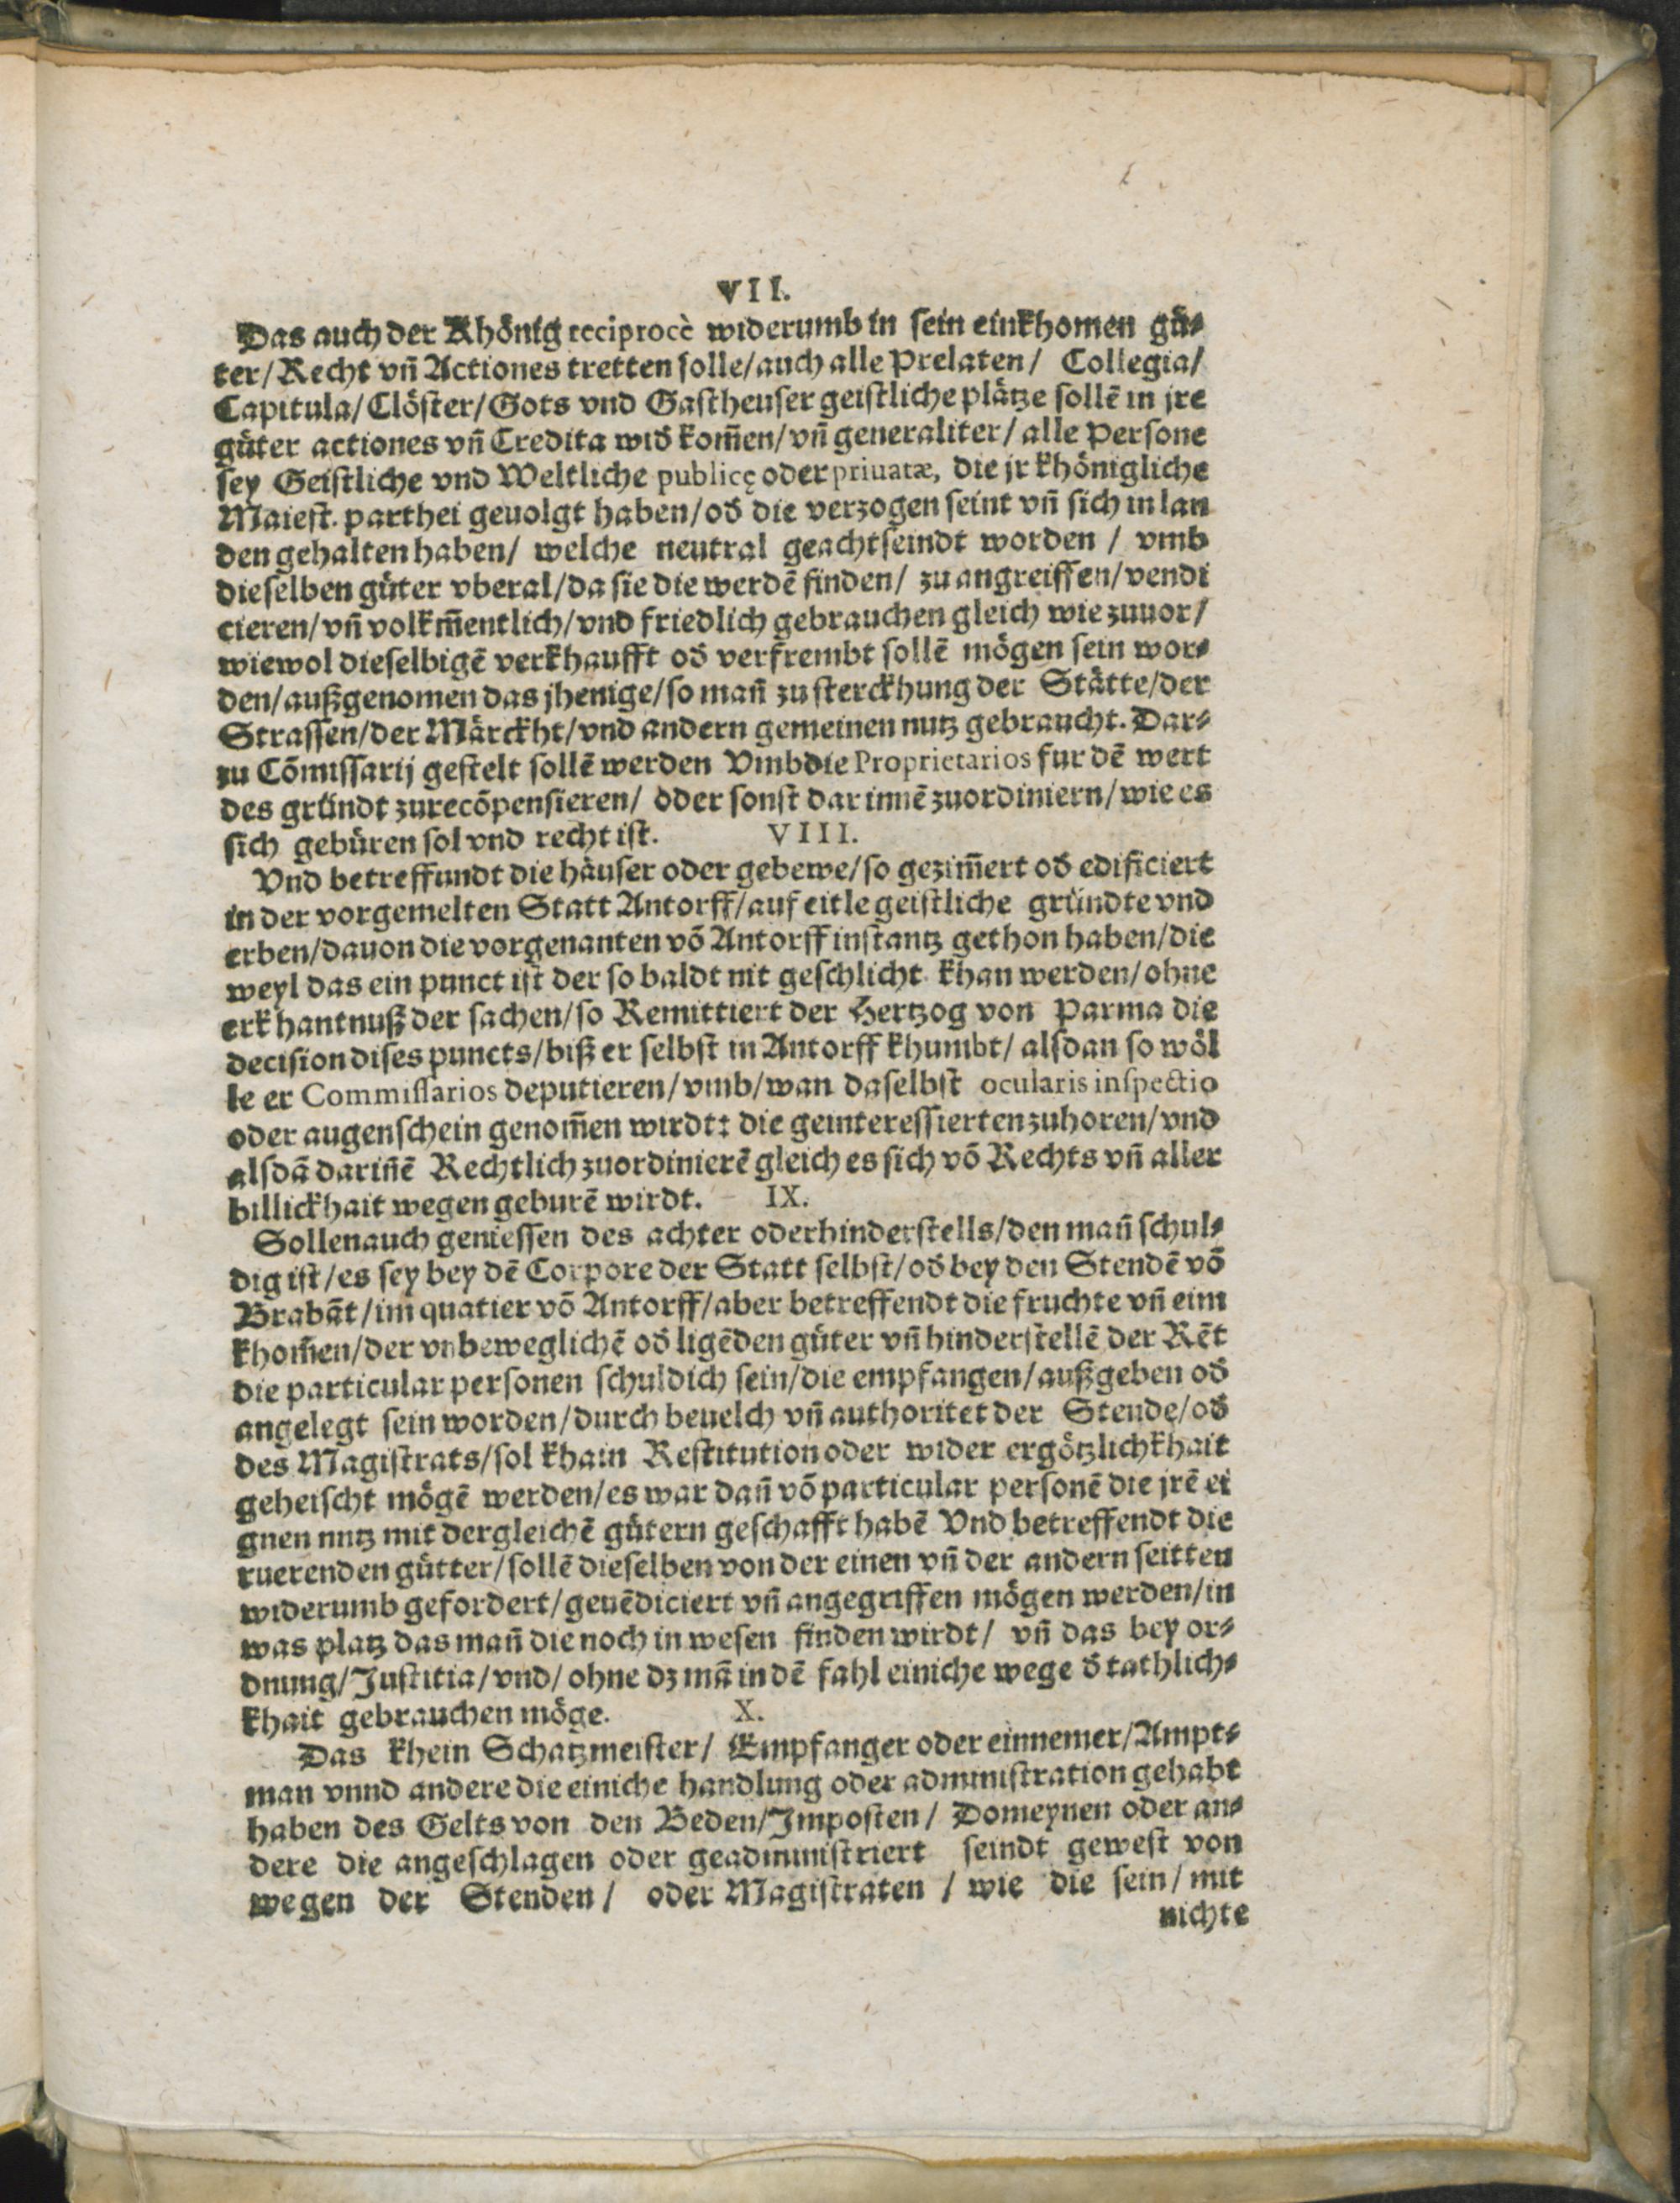 VII.
Das auch der Khönig reciprocè widerumb in sein einkhomen gü⸗
ter/Recht vñ Actiones tretten solle/auch alle Prelaten/ Collegia/
Capitula/Clöster/Gots vnd Gastheuser geistliche plätze sollẽ in jre
güter actiones vñ Credita wid̄ kom̃en/vñ generaliter/alle Persone
sey Geistliche vnd Weltliche publicę oder priuatæ, die jr khönigliche
Maiest. parthei geuolgt haben/od̄ die verzogen seint vñ sich in lan
den gehalten haben/ welche neutral geacht seindt worden / vmb
dieselben güter vberal/da sie die werdẽ finden/ zu angreiffen/vendi
cieren/vñ volkm̃entlich/vnd friedlich gebrauchen gleich wie zuuor/
wiewol dieselbigẽ verkhaufft od̄ verfrembt sollẽ mögen sein wor⸗
den/außgenomen das jhenige/so mañ zu sterckhung der Stätte/der
Strassen/der Märckht/vnd andern gemeinen nutz gebraucht. Dar⸗
zu Cõmissarij gestelt sollẽ werden Vmb die Proprietarios fur dẽ wert
des gründt zurecõpensieren/ oder sonst dar innẽ zuordiniern/wie es
sich gebüren sol vnd recht ist. VIII.
Vnd betreffundt die häuser oder gebewe/so gezim̃ert od̄ edificiert
in der vorgemelten Statt Antorff/auf eitle geistliche gründte vnd
erben/dauon die vorgenanten võ Antorff instantz gethon haben/die
weyl das ein punct ist der so baldt nit geschlicht khan werden/ohne
erkhantnuß der sachen/so Remittiert der Hertzog von Parma die
decision dises puncts/biß er selbst in Antorff khumbt/ alsdan so wöl
le er Commissarios deputieren/vmb/wan daselbst ocularis inspectio
oder augenschein genom̃en wirdt: die geinteressierten zuhoren/vnd
alsdã dariñẽ Rechtlich zuordinierẽ gleich es sich võ Rechts vñ aller
billickhait wegen geburẽ wirdt. IX.
Sollen auch geniessen des achter oder hinderstells/den mañ schul⸗
dig ist/es sey bey dẽ Corpore der Statt selbst/od̄ bey den Stendẽ võ
Brabãt/im quatier võ Antorff/aber betreffendt die fruchte vñ eim
khom̃en/der vnbeweglichẽ od̄ ligẽden güter vñ hinderstellẽ der Rẽt
die particular personen schuldich sein/die empfangen/außgeben od̄
angelegt sein worden/durch beuelch vñ authoritet der Stende/od̄
des Magistrats/sol khain Restitution oder wider ergötzlichkhait
geheischt mögẽ werden/es war dañ võ particular personẽ die jrẽ ei
gnen nutz mit dergleichẽ gütern geschafft habẽ Vnd betreffendt die
ruerenden gütter/sollẽ dieselben von der einen vñ der andern seitten
widerumb gefordert/geuẽdiciert vñ angegriffen mögen werden/in
was platz das mañ die noch in wesen finden wirdt/ vñ das bey or⸗
dnung/Justitia/vnd/ohne dz mã in dẽ fahl einiche wege d̄ tathlich⸗
khait gebrauchen möge. X.
Das khein Schatzmeister/ Empfanger oder einnemer/Ampt⸗
man vnnd andere die einiche handlung oder administration gehabt
haben des Gelts von den Beden/Imposten/ Domeynen oder an⸗
dere die angeschlagen oder geadministriert seindt gewest von
wegen der Stenden/ oder Magistraten / wie die sein/ mit
nichte